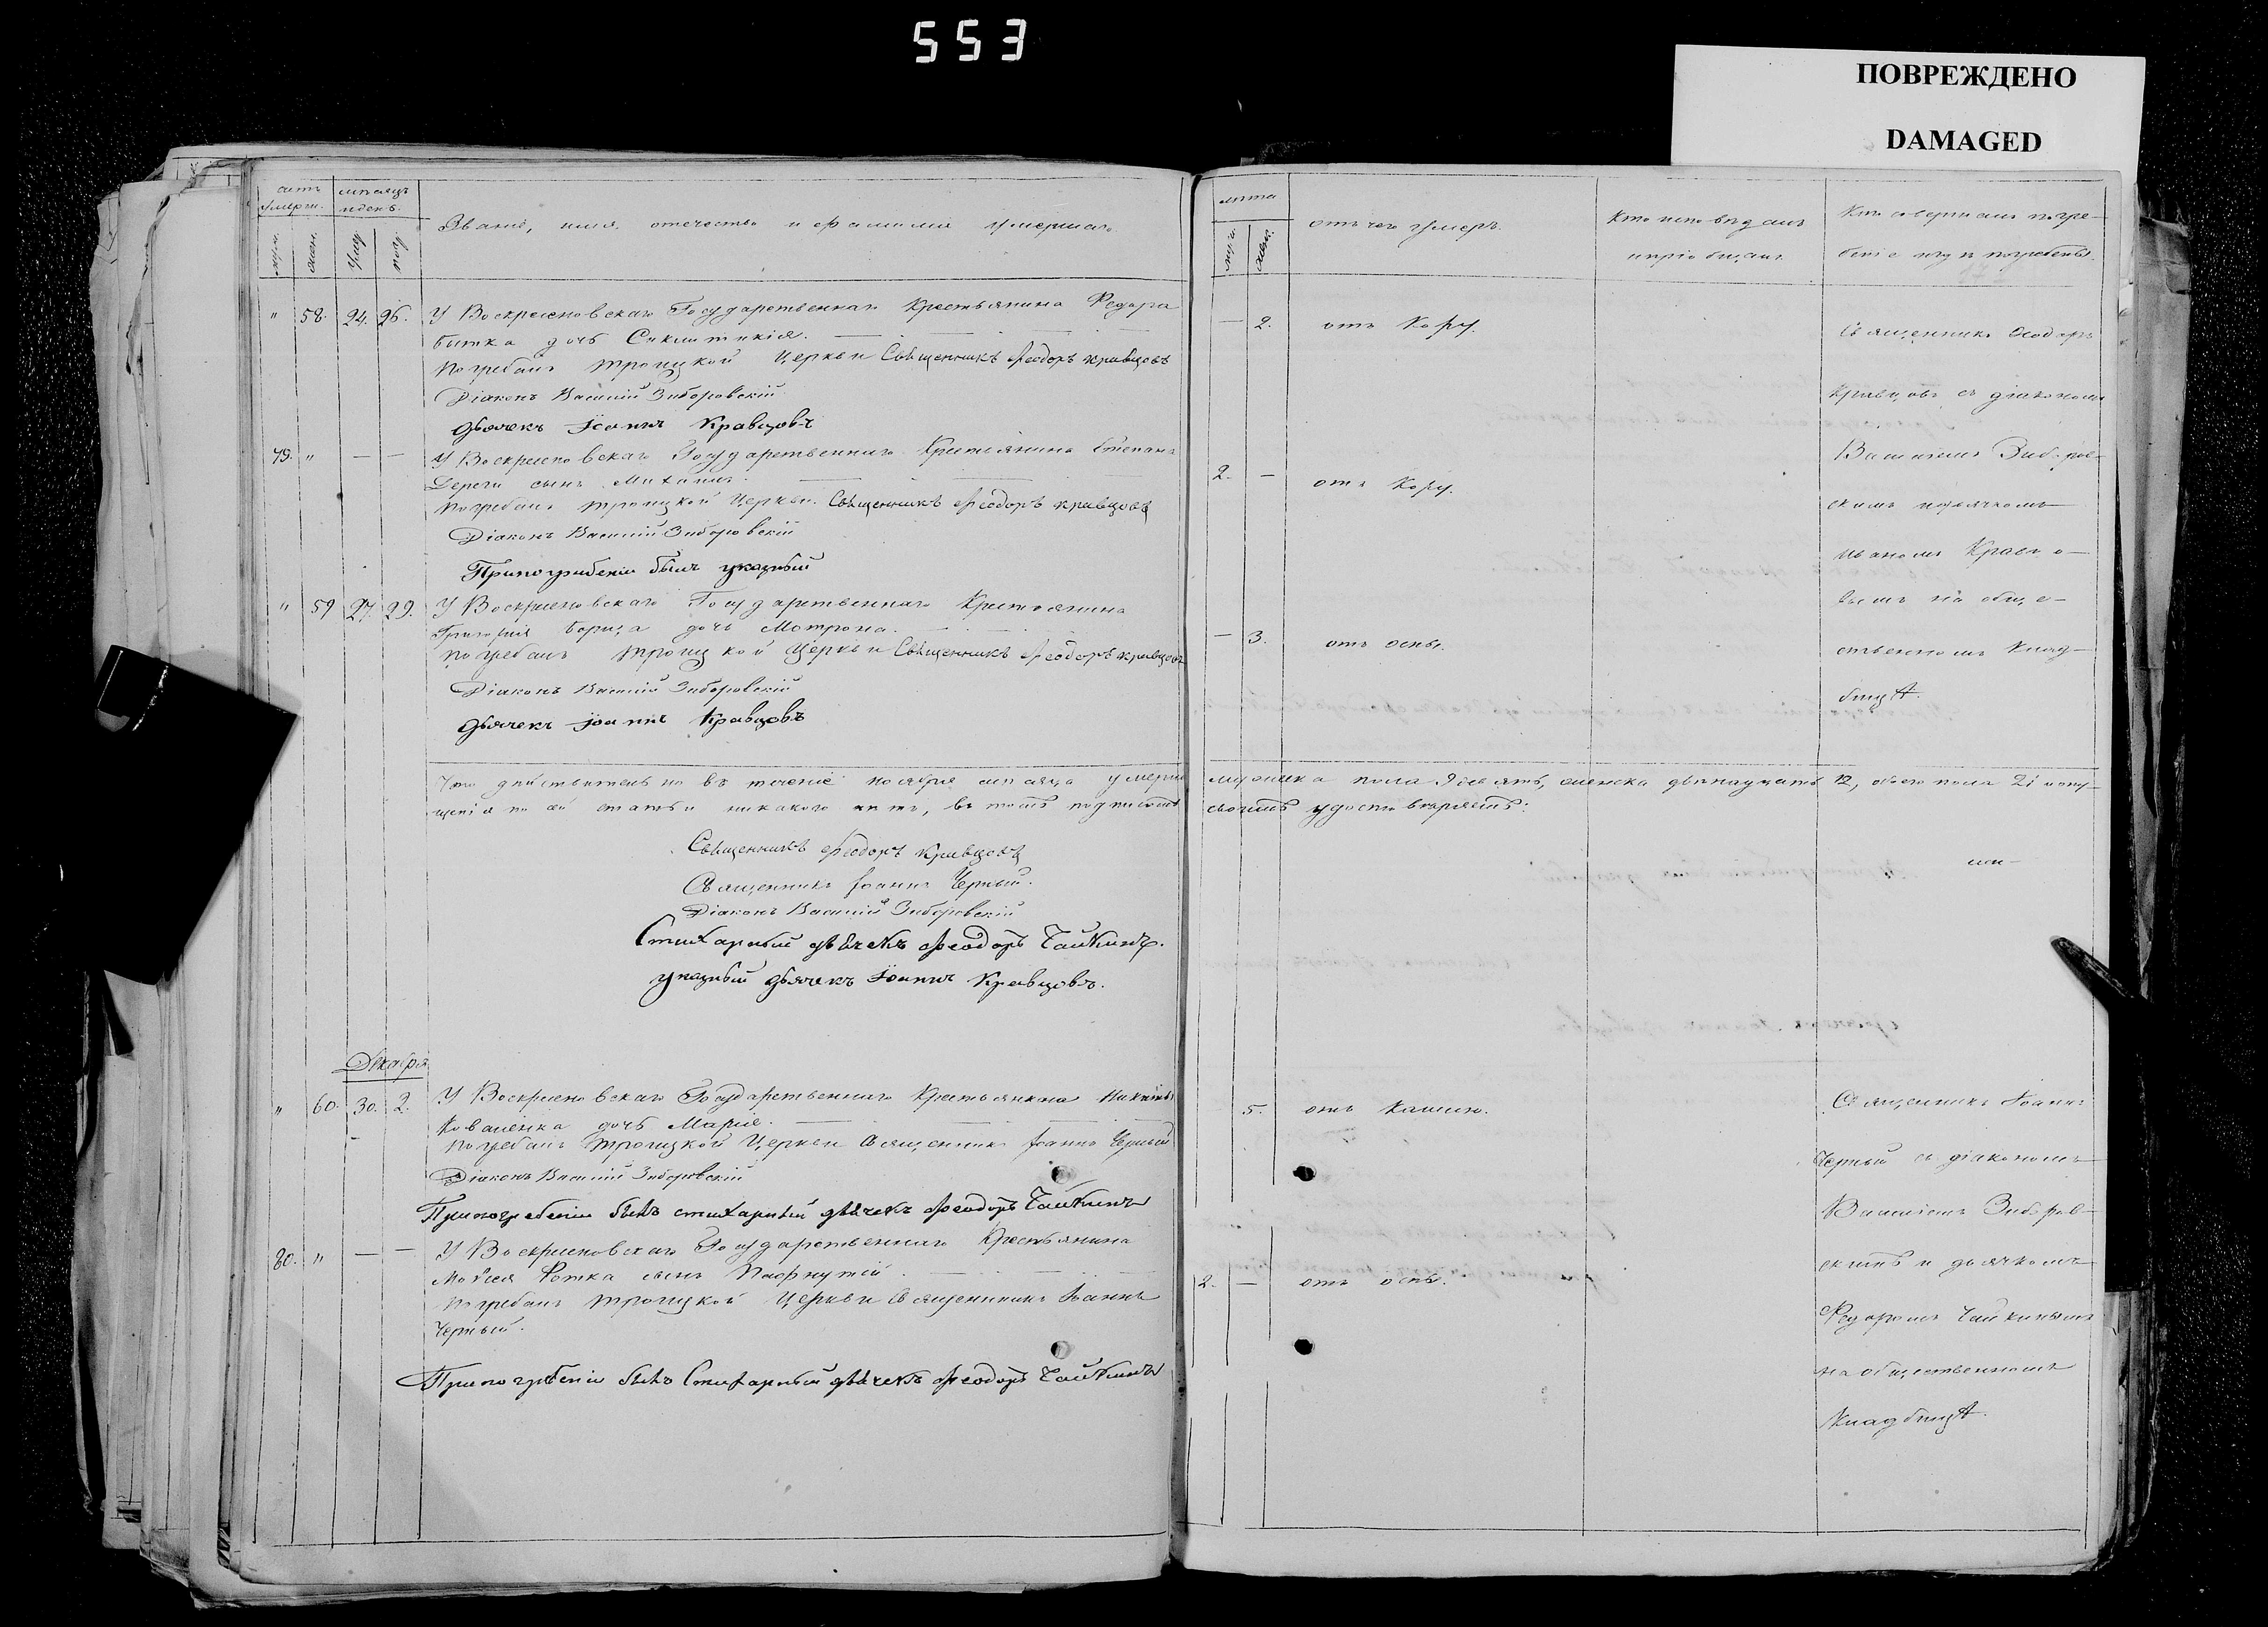 553
ПОВРЕЖДЕНО
DAMAGED
счетъ умерш.
мѣсяцъ и день.
Званіе, имя, отечество и фамилія умершаго
муж. жен. умер. погр.
" 58. 24. 26. У Воскресеновскаго Государственнаго Крестьянина Федора
дочь Синклитикія.
Погребалъ Троицкой Церкви Священникъ Феодоръ Кравцовъ
Діаконъ Василій Зиборовскій
Дьячекъ Іоаннъ Кравцовъ
79. " — — У Воскресеновскаго Государственнаго Крестьянина Степана
Дереги сынъ Михаилъ.
Погребалъ Троицкой Церкви Священникъ Феодоръ Кравцовъ
Діаконъ Василій Зиборовскій
Припогребеніи былъ указный
" 59 27. 29. У Воскресеновскаго Государственнаго Крестьянина
Григорія Борица дочь Мотрона.
Погребалъ Троицкой Церкви Священникъ Феодоръ Кравцовъ
Діаконъ Василій Зиборовскій
Дьячекъ Іоаннъ Кравцовъ
Что дѣйствительно въ теченіе ноября мѣсяца умерш
щенія по сей статьи никакого нѣтъ, въ томъ подписомъ
Священникъ Феодоръ Кравцовъ
Священникъ Іоаннъ Черный.
Діаконъ Василій Зиборовскій
Стихарный дьячекъ Феодоръ Чайкинъ.
указный дьячекъ Іоаннъ Кравцовъ.
Декабрь
" 60. 30. 2. У Воскресеновскаго Государственнаго Крестьянина Никиты
Коваленка дочь Марія.
Погребалъ Троицкой Церкви Священникъ Іоаннъ Черный
Діаконъ Василій Зиборовскій
Припогребеніи былъ стихарный дьячекъ Феодоръ Чайкинъ
80. " — — У Воскресеновскаго Государственнаго Крестьянина
Моисея Фотка сынъ Пафнутій.
Погребалъ Троицкой Церкви Священникъ Іоаннъ
Черный.
Припогребеніи былъ Стихарный дьячекъ Феодоръ Чайкинъ
лѣта
муж. жен.
отъ чего умеръ.
Кто исповѣдалъ
и пріобщалъ.
Кто совершалъ погре-
беніе и гдѣ погребены.
— 2. отъ Кору.
2. — отъ Кору.
— 3. отъ оспы.
Священникъ Феодоръ
Кравцовъ съ діакономъ
Василіемъ Зиборов-
скимъ и дьячкомъ
Иваномъ Кравцо-
вымъ на обще-
ственномъ клад-
бищѣ.
мужеска пола 9 девять, женска двѣнадцать 12, обоего пола 21 и опу-
своимъ удостовѣряемъ:
5. отъ кашлю.
2. — отъ оспы.
Священникъ Іоаннъ
Черный съ діакономъ
Василіемъ Зиборов-
скимъ и дьячкомъ
Федоромъ Чайкинымъ
на общественномъ
кладбищѣ.